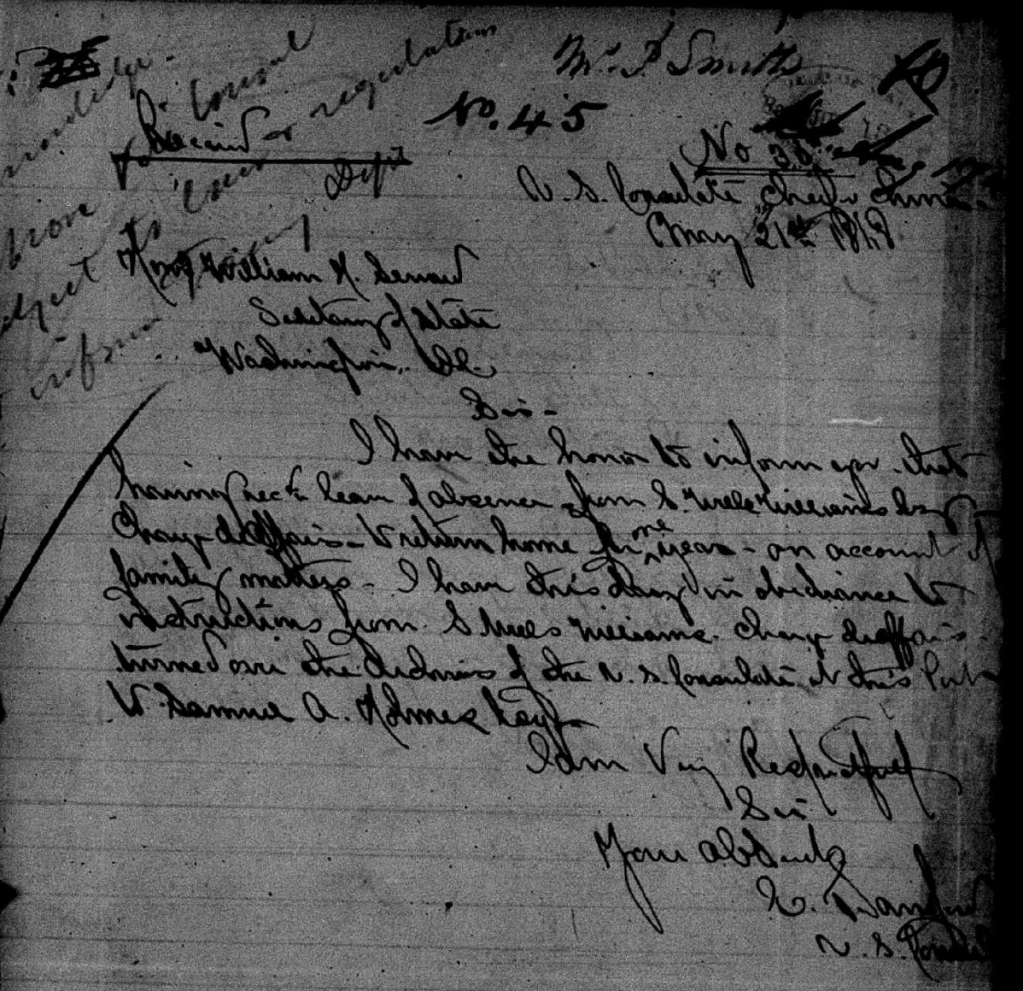 Mr. F Smith
No. 45
No 36
U. S. Consulate Chefoo China
May 21st 1868
Received
Consul
regulations
Dept
subject to
inform
Hon William H. Seward
Secretary of State
Washington. DC.
Sir-
I have the honor to inform you - that
having recd leave of absence from S. Wells Williams Esqr
Charge d Affairs - to return home for one year - on account of
family matters - I have this day in obediance to
instructions from S Wells Williams. Charge de affairs.
turned over the Archives of the U. S. Consulate at this Port
to Samuel A. Holmes Esqr
I am Very Respectfull
Sir
Your Obt Servt
E.
U. S. Consul